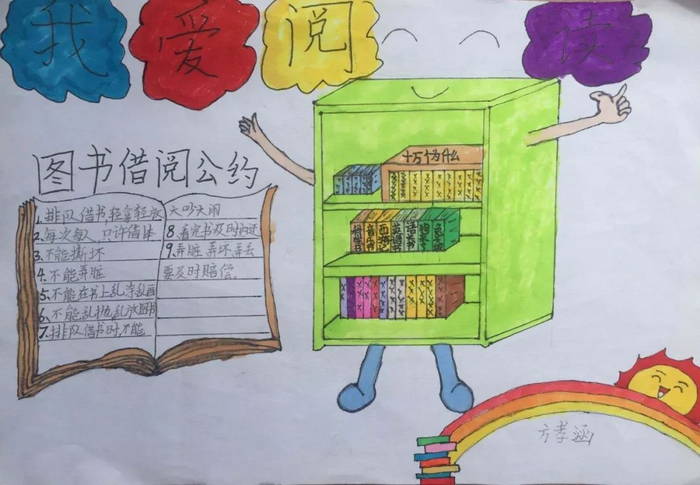 我爱阅读
图书借阅公约
1.排队借书轻拿轻放
2.每次每人只许借1本
3.不能撕坏
4.不能弄脏
5.不能在书上乱写乱画
6.不能乱抛乱放图书
7.排队借书时不能
大吵大闹
8.看完书及时归还
9.弄脏弄坏弄丢
要及时赔偿.
十万个为什么
方孝涵